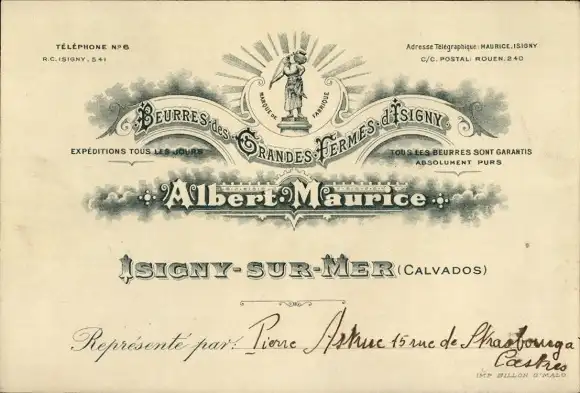 TÉLÉPHONE Nº 6
R.C. ISIGNY. 541
Adresse Télégraphique: MAURICE, ISIGNY
C/C. POSTAL: ROUEN. 240
MARQUE DE FABRIQUE
BEURRES DES GRANDES FERMES D'ISIGNY
EXPÉDITIONS TOUS LES JOURS
TOUS LES BEURRES SONT GARANTIS
ABSOLUMENT PURS
ALBERT MAURICE
ISIGNY-SUR-MER (CALVADOS)
Représenté par: Pierre Astruc 15 rue de Strasbourga
Castres
IMP BILLON St MALO